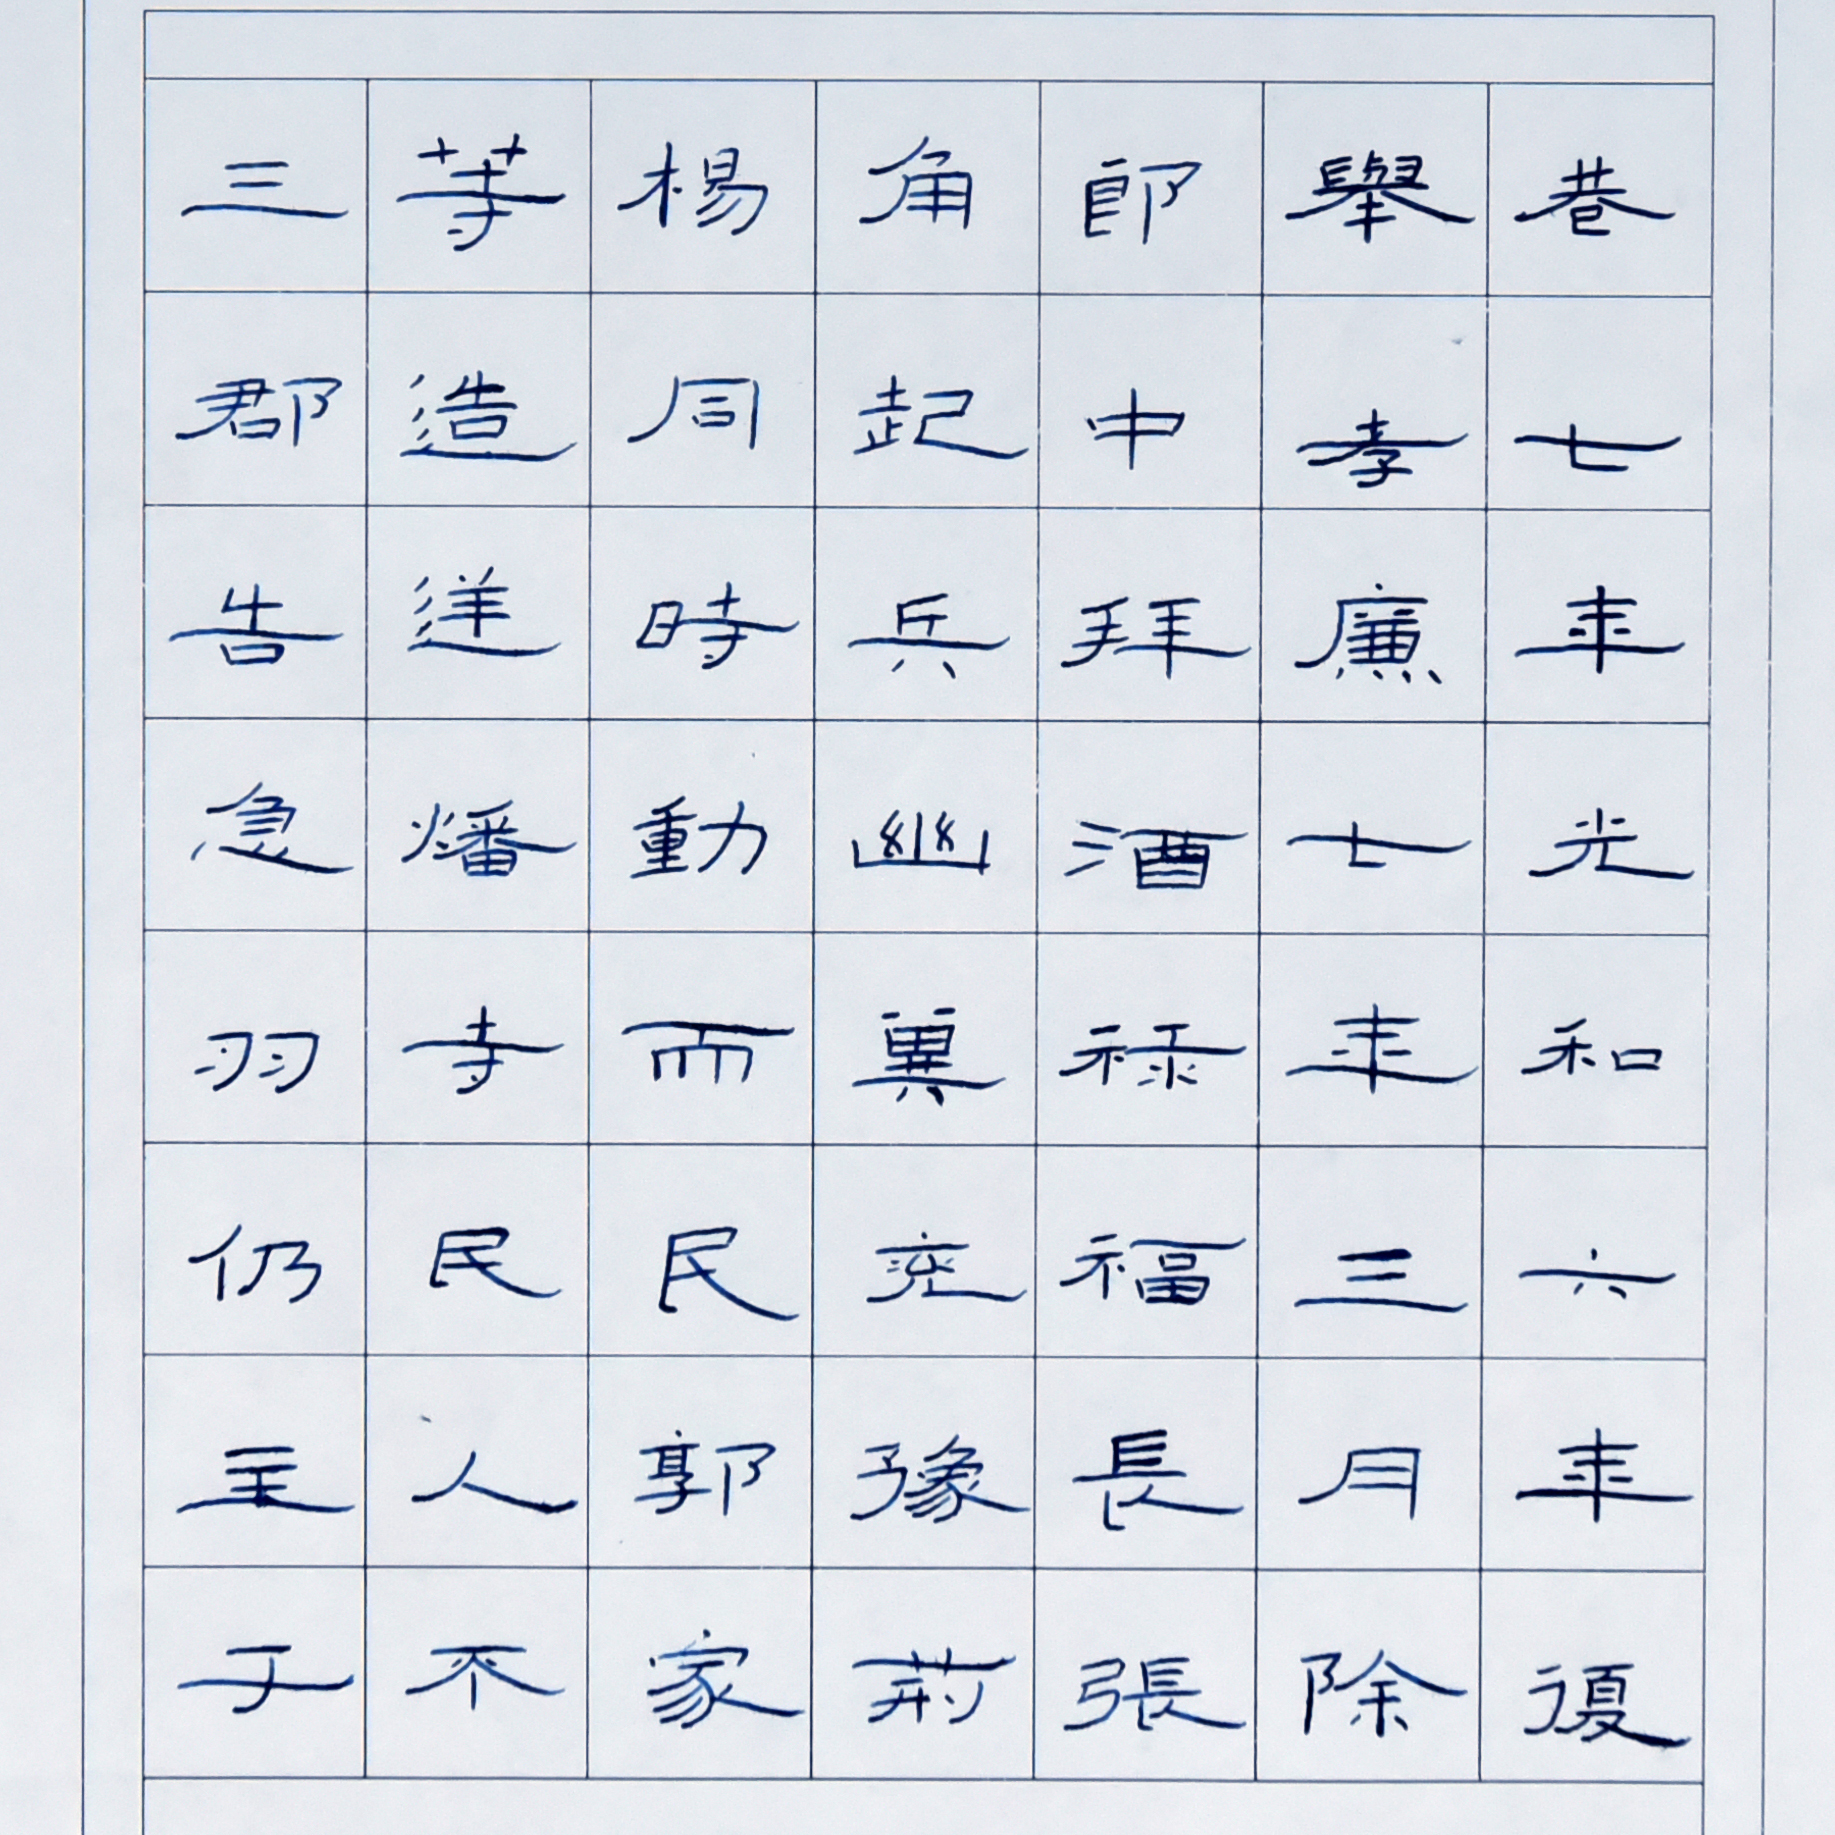 巷七年光和六年復
舉孝廉七年三月除
郎中拜酒祿福長張
角起兵幽冀兖豫荊
楊同時動而民郭家
等造逆燔寺民人不
三郡告急羽仍至于